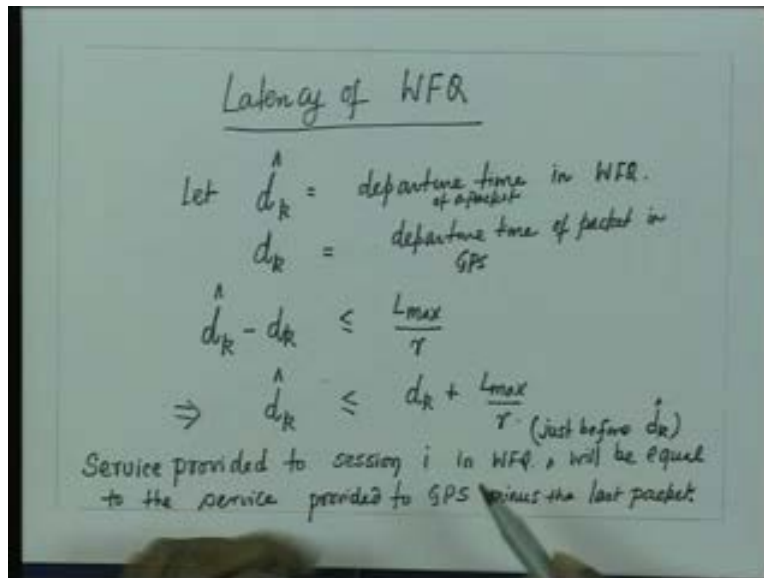 Latency of WFQ
Let d̂_k = departure time of a packet in WFQ.
d_k = departure time of packet in GPS
d̂_k - d_k ≤ L_max / r
⇒ d̂_k ≤ d_k + L_max / r
(just before d̂_k)
Service provided to session i in WFQ, will be equal
to the service provided to GPS minus the last packet.